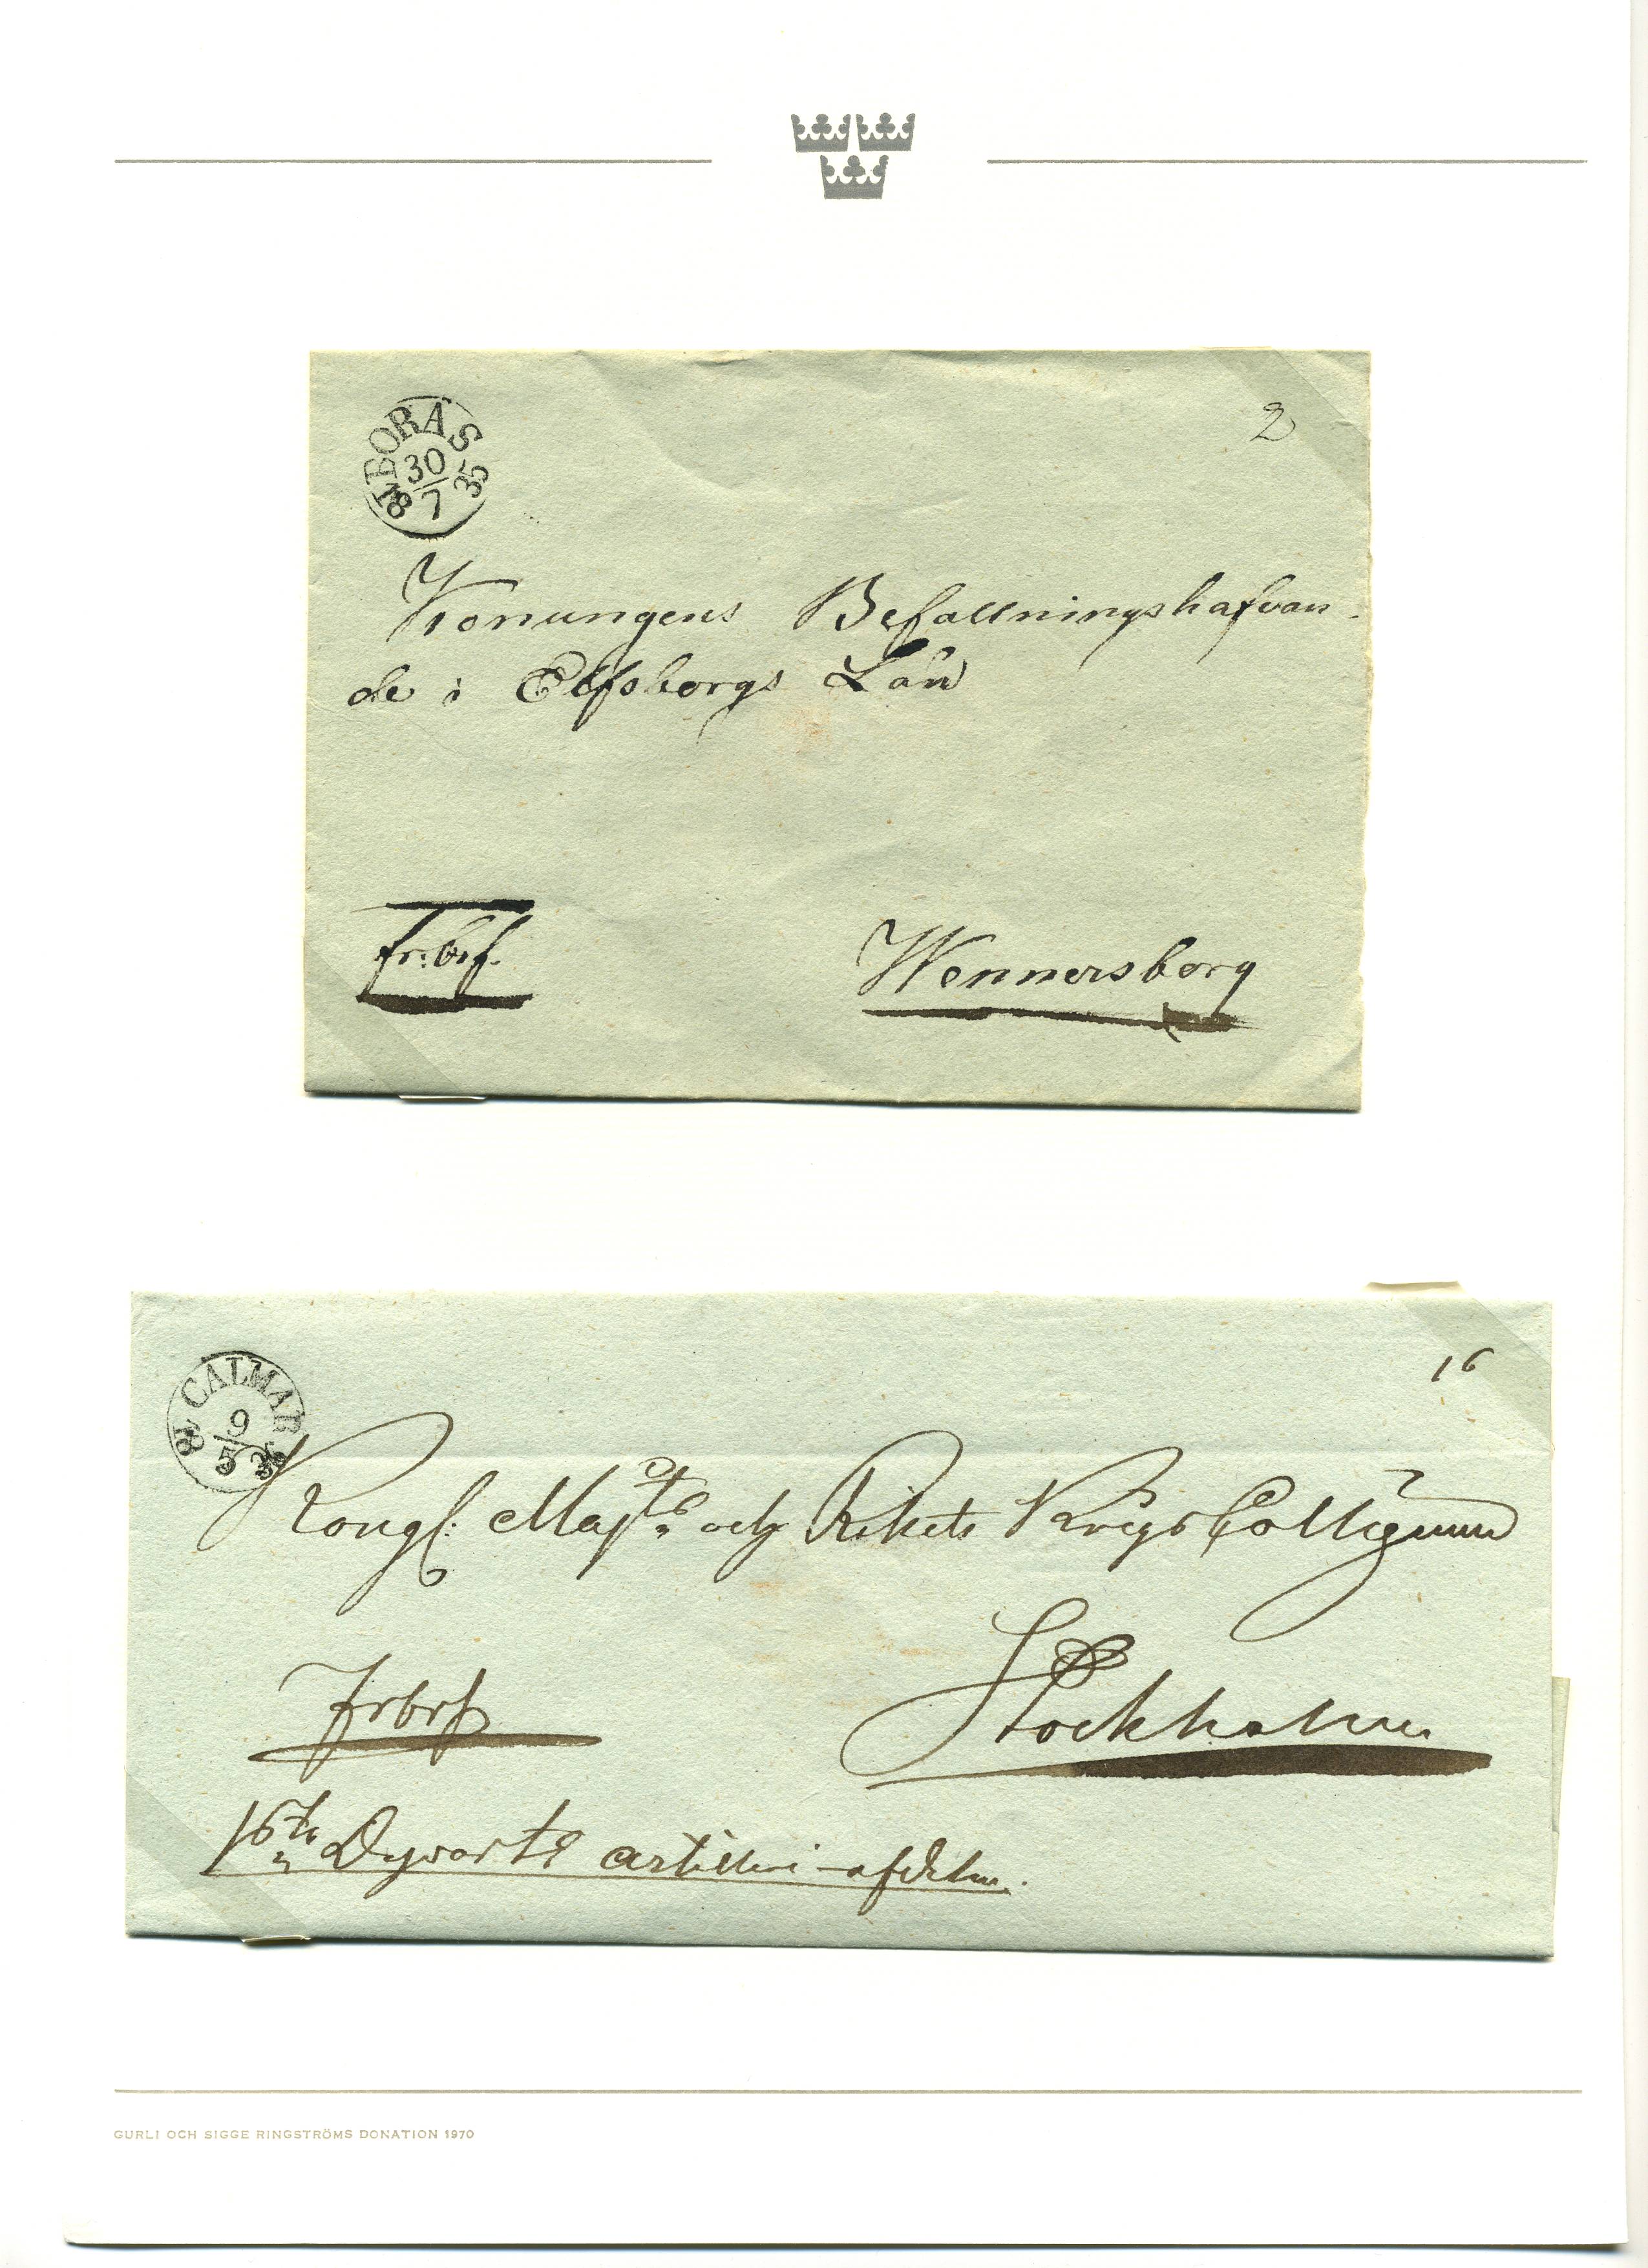 BORÅS
30
7
18 35
2
Konungens Befallningshafvan-
de i Elfsborgs Län
fr:brf.
Wennersborg
CALMAR
9
5
18
16
Kongl: Majts och Rikets Krigs Collegium
Frbrf
Stockholm
artilleri-afdeln.
GURLI OCH SIGGE RINGSTRÖMS DONATION 1970